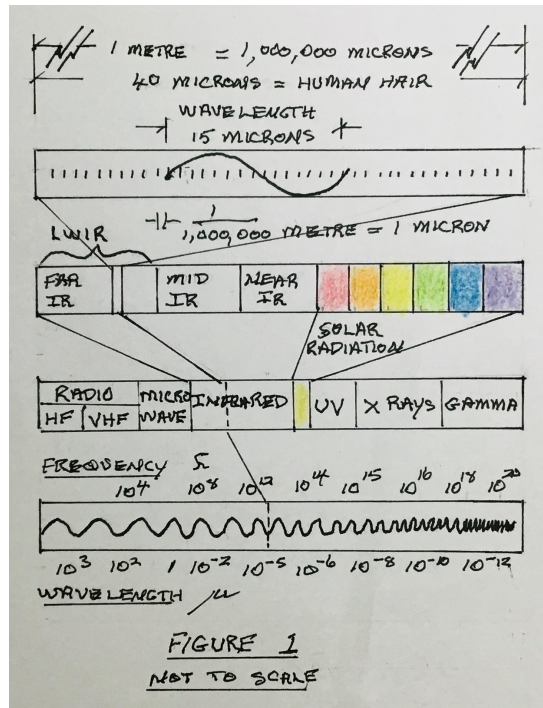 1 METRE = 1,000,000 MICRONS
40 MICRONS = HUMAN HAIR
WAVELENGTH
15 MICRONS
1
1,000,000 METRE = 1 MICRON
LWIR
FAR MID NEAR
IR IR IR
SOLAR
RADIATION
RADIO MICRO INFRARED UV X RAYS GAMMA
HF VHF WAVE
FREQUENCY Ω
10⁴ 10⁸ 10¹² 10¹⁴ 10¹⁵ 10¹⁶ 10¹⁸ 10²⁰
10³ 10² 1 10⁻² 10⁻⁵ 10⁻⁶ 10⁻⁸ 10⁻¹⁰ 10⁻¹²
WAVELENGTH μ
FIGURE 1
NOT TO SCALE